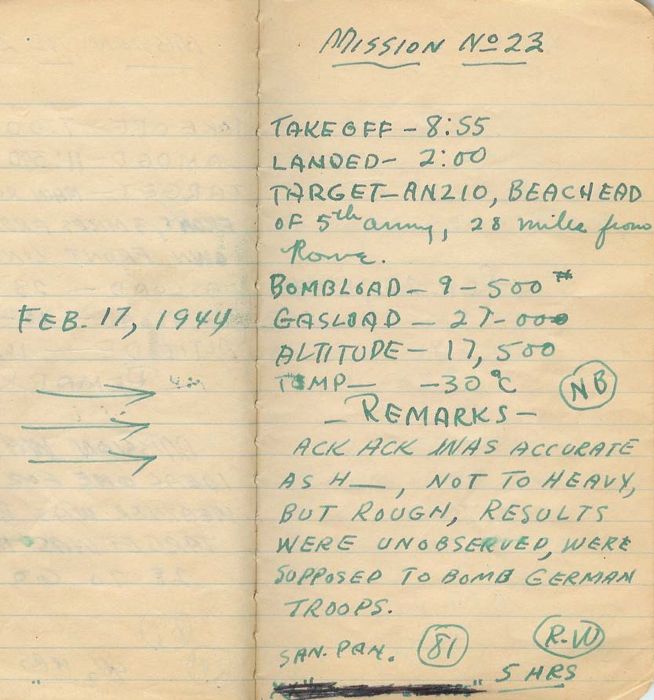 MISSION No 23
TAKEOFF - 8:55
LANDED - 2:00
TARGET - ANZIO, BEACHEAD
OF 5th army, 28 miles from
Rome.
BOMBLOAD - 9 - 500 #
FEB. 17, 1944
GASLOAD - 27-00
ALTITUDE - 17,500
TEMP - -30°C
NB
- REMARKS -
ACK ACK WAS ACCURATE
AS H__, NOT TO HEAVY,
BUT ROUGH, RESULTS
WERE UNOBSERVED, WERE
SUPPOSED TO BOMB GERMAN
TROOPS.
SAN. PAN. 81 R-W
5 HRS